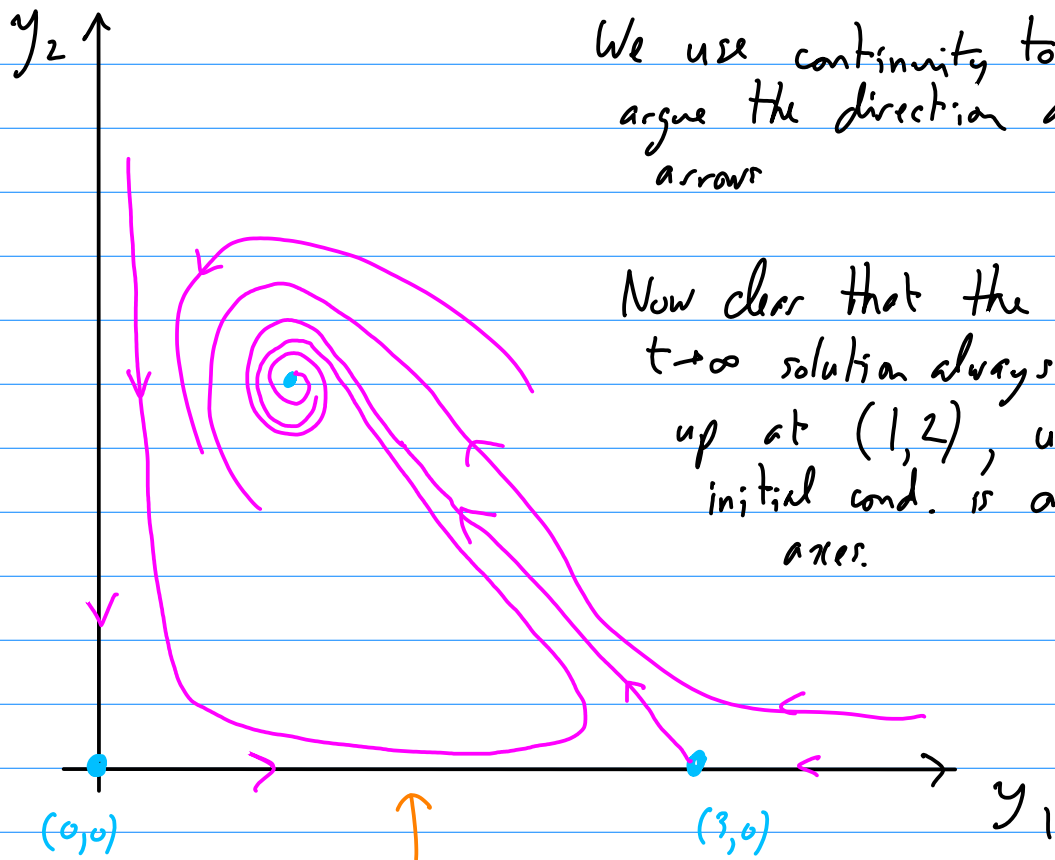 y₂
We use continuity to
argue the direction
arrows
Now clear that the
t→∞ solution always
up at (1,2), u
initial cond. is
axes.
y₁
(0,0)
(3,0)